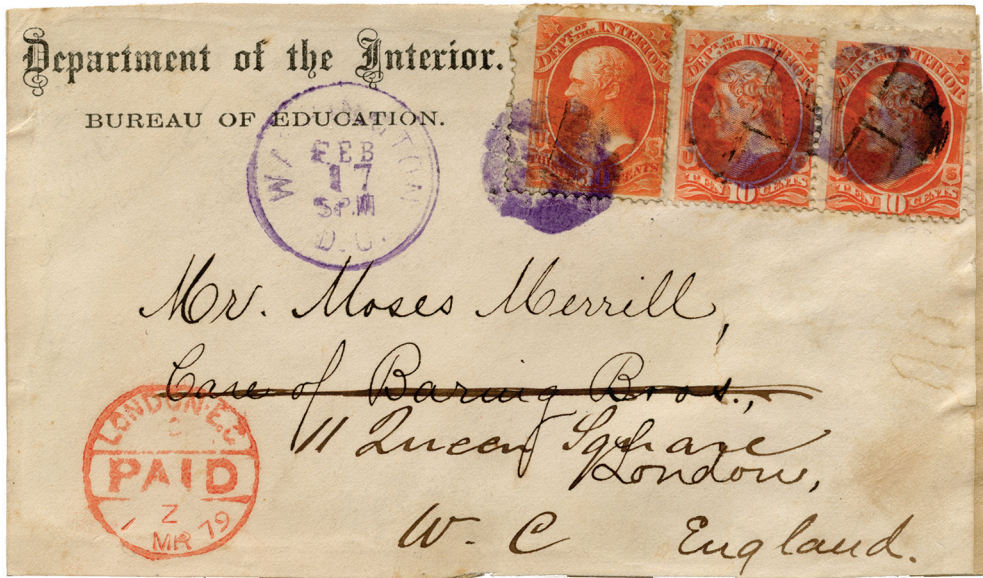 Department of the Interior.
BUREAU OF EDUCATION.
WASHINGTON
FEB
17
5 PM
D.C.
DEPT. OF THE INTERIOR
CENTS
DEPT. OF THE INTERIOR
TEN 10 CENTS
DEPT. OF THE INTERIOR
TEN 10 CENTS
Mr. Moses Merrill,
Care of Baring Bros.,
11 Queen Square
London,
W. C England.
LONDON·E.C
PAID
Z
1 MR 79